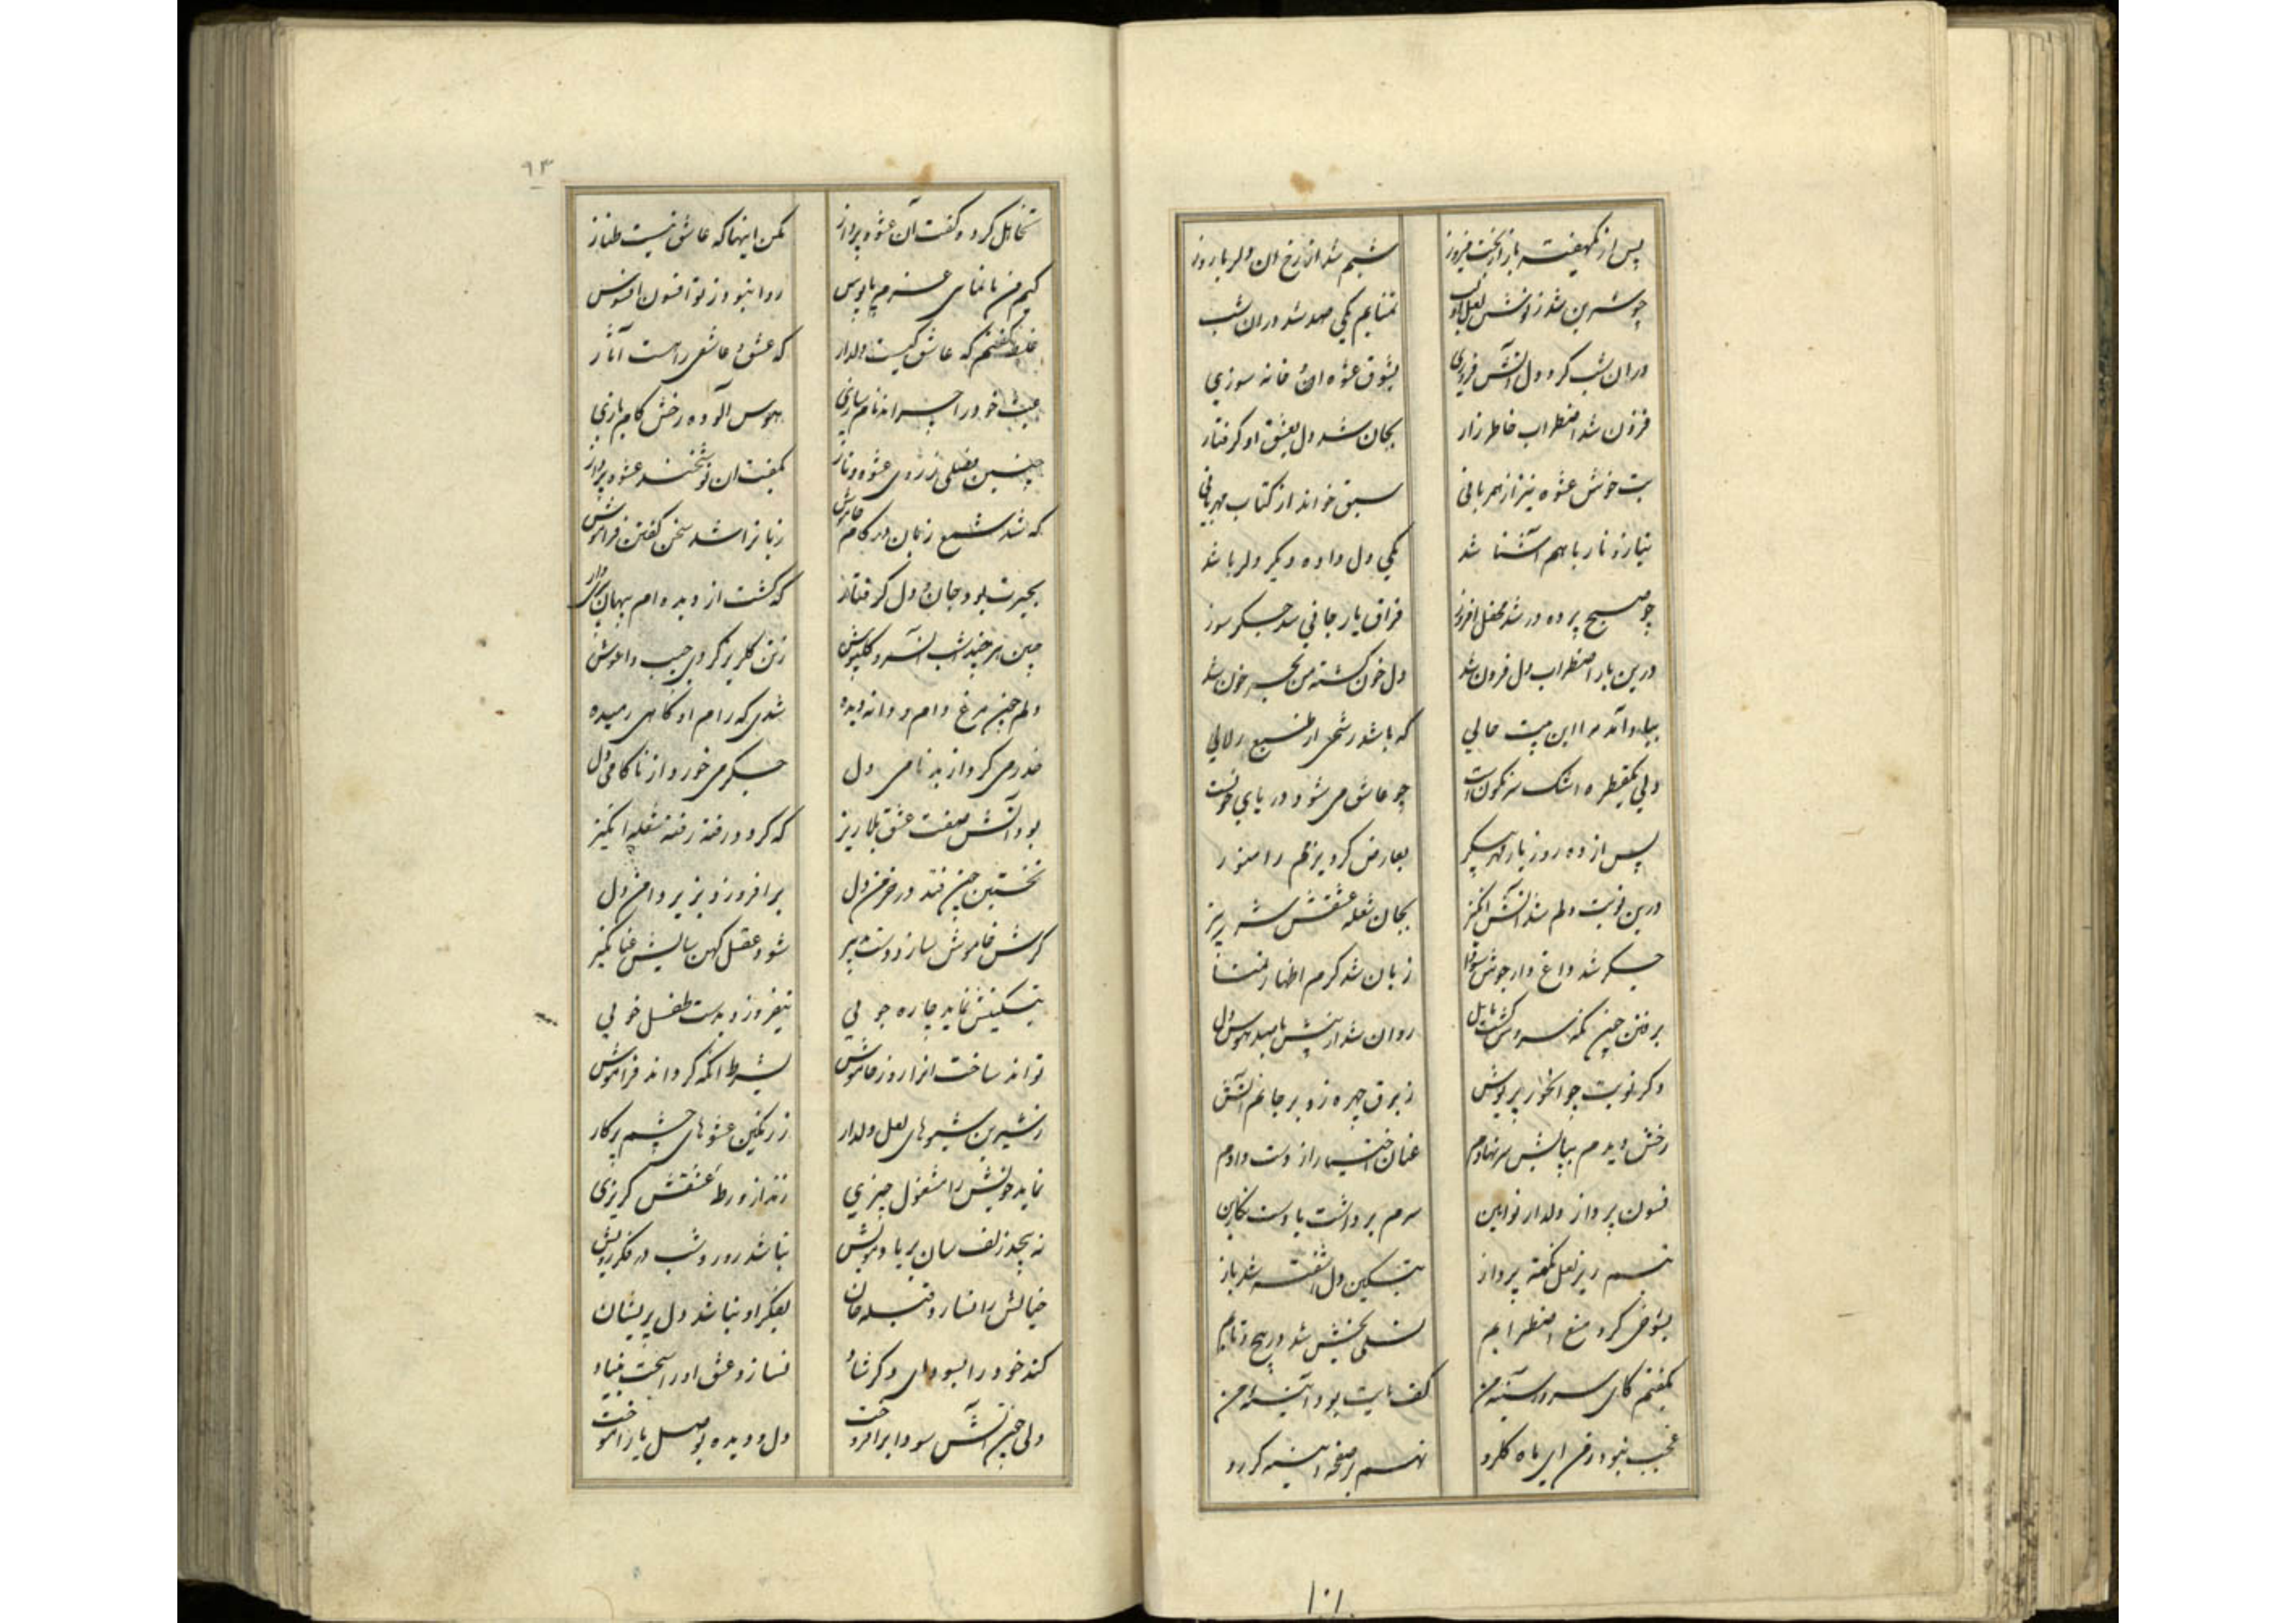 پس از یکهفته باز از بخت فیروز شبم شد از رخ ان دلربا روز
چو شیرین شد ز نوشش لعل تمنایم یکی صد شد دران شب
دران شب کرد دل آتش فروزی بشوق عشوه ان خانه سوزی
فزون شد اضطراب خاطر زار بجان شد دل بعشق او گرفتار
بت خوش عشوه نیز از مهربانی سبق خواند از کتاب مهربانی
نیاز و ناز با هم آشنا شد یکی دل داده و دیگر دلربا شد
چو صبح پرده در شد محفل افروز فراق یار جانی شد جگر سوز
درین بار اضطراب دل فزون شد دل خون گشته من بحر خون شد
بیاد آمد مرا این بیت حالی که باشد رشحی از طبع زلالی
ولی یکقطره اشک سرنگونست چو عاشق می شود دریای خونست
پس از ده روز یار مهر پیکر بعارض کرد بزمم را منور
درین نوبت دلم شد آتش انگیز بجان شعله عشقش شرر ریز
جگر شد داغ دار جوش سودا زبان شد گرم اظهار تمنا
برفتن چین نمد سروش گشت مایل روان شد از پیش باصد هوس دل
دگر نوبت چو انحور پریوش ز برق چهره زد بر جانم آتش
رخش دیدم بپایش سر نهادم عنان اختیار از دست دادم
فسون پرداز دلدار نوایین سرم برداشت با دست نگارین
تبسم ریز لعل نکته پرداز بتسکین دل اشفته شد باز
بشوخی کرد منع اضطرابم تسلی بخش شد در پیچ و تابم
بگفتم کای سرور سینه من کف پایت بود آئینه من
عجب نبود ز من ای ماه گلرو نهم بر صفحه آئینه گر رو
۱۰۱
۹۳
تغافل کرد و گفت آن عشوه پرداز مکن اینها که عاشق نیست طناز
کیم من تا نمای عزم پابوس روا نبود ز تو افسون افسوس
غلط گفتم که عاشق کیست دلدار که عشق و عاشقی راهست آثار
عبث خود را چرا بدنام سازی بهوس آلوده رخش کام بازی
چنین فصلی ز روی عشوه و ناز بگفت ان نوشخند عشوه پرداز
که شد شمع زبان در کام خاموش زبانرا شد سخن گفتن فراموش
بحیرت بود جان و دل گرفتار که گشت از دیده ام پنهان پری وار
چنین هر چند شب آن سرو گلپوش زدن گلریز کردی جیب و اغوش
دلم چون مرغ دام و دانه دیده شدی که رام او گاهی رمیده
حذر می کرد از بدنامی دل جگر می خورد از ناکامی دل
بود آتش صفت عشق بلا ریز که گردد رفته رفته شعله انگیز
نخستین چون فتد در خرمن دل برافروزد بزیر دامن دل
گرش خاموش سازد دوست پیر شود عقل کهن سالش عنانگیر
بتسکینش نماید چاره جویی نیفروزد بدست طفل خویی
تواند ساخت انرا زود خاموش بشرط انکه گرداند فراموش
ز شیرین شیوهای لعل دلدار ز رنگین عشوهای چشم پرکار
نماید خویش را مشغول چیزی زند از ورطه عشقش گریزی
نه پیچد زلف سان بر یاد مویش نباشد روز و شب در فکر رویش
خیالش را نسازد قبله جان بفکر او نباشد دل پریشان
کند خود را بسودای دگر شاد نسازد عشق او را سخت بنیاد
ولی چون آتش سودا برافروخت دل و دیده بوصل یار آموخت